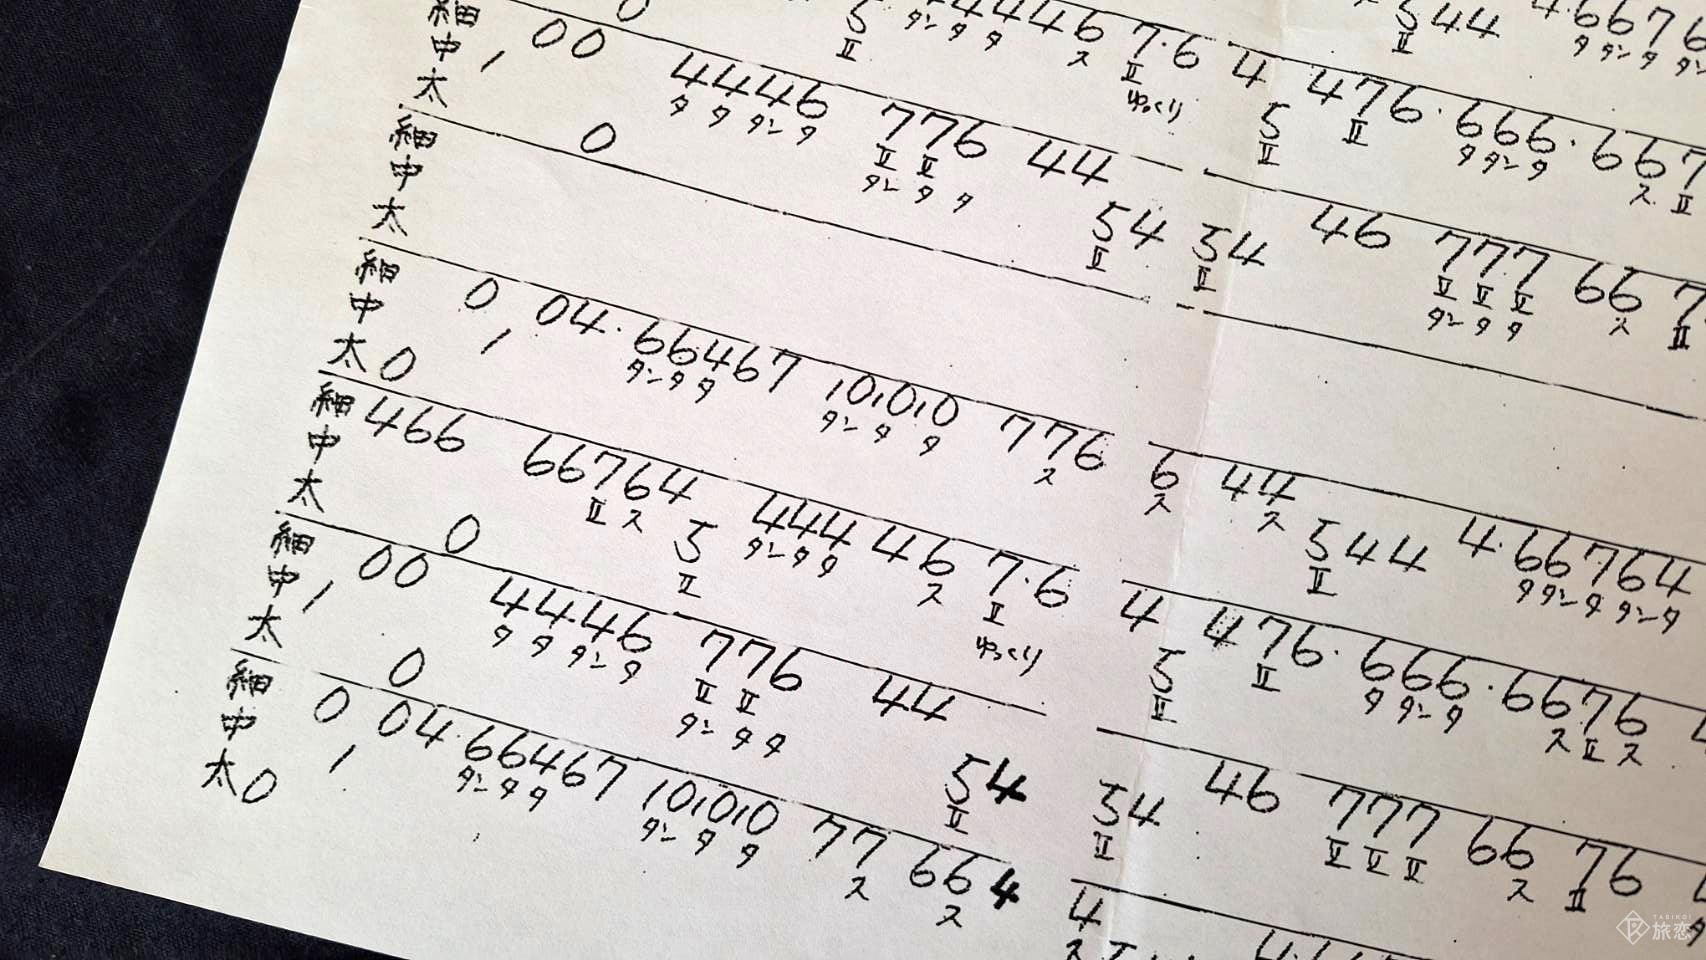 細 0 4446 7.6
中 5 ス II
太 II タンタタ ゆっくり
4 476.666.667
5 II タタンタ ス II
II
544 4.6676
II タタンタタン
細 00 4446 776 44
中 1 タタタンタ II II 54
太 0 タンタタ II
54 46 777 66 7
II II II II ス II
タンタタ
細
中
太
細 0 04.66467 10,10,10 776
中 1 タンタタ タンタタ ス
太 0
6 44 544 4.66764
ス ス II タタンタタンタ
細 466 66764 444 46 7.6
中 II ス 5 タンタタ ス II
太 0 II ゆっくり
4 476.666.6676
5 II タタンタ ス II ス
II
細 00 4446 776 44
中 1 タタタンタ II II 54
太 0 タンタタ II
54 46 777 66 76
II II II II ス II
細 0 04.66467 10,10,10 77 664
中 1 タンタタ タンタタ ス ス
太 0
4
ス
旅恋
TABIKOI